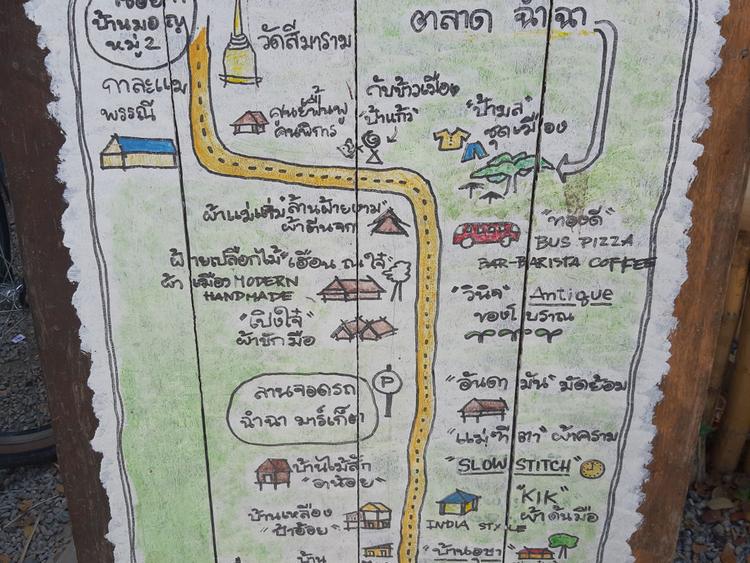 บ้านมอญ
หมู่ 2
วัดสีมาราม
ตลาด ฉำฉา
กาละแม
พรรณี
ศูนย์ฟื้นฟู
คนพิการ
กับข้าวเมือง
"ป้าแก้ว"
"ป้ามล"
ชุดเมือง
ผ้าแม่เต่ม "ล้านฝ้ายงาม"
ผ้าตีนจก
"ทองดี"
BUS PIZZA
BAR-BARISTA COFFEE
ผ้ายเปลือกไม้ "เฮือน ณ ใจ๋"
ผ้าเมือง MODERN
HANDMADE
"วินิจ" Antique
ของโบราณ
"เปิงใจ๋"
ผ้าชักมือ
P
ลานจอดรถ
ฉำฉา มาร์เก็ต
"อันดามัน" มัดย้อม
"แม่ที ตา" ผ้าคราม
"SLOW STITCH"
บ้านไม้สัก
"อาห้อย"
"KIK"
ผ้าด้นมือ
INDIA STYLE
บ้านเหลือง
"ป้าอ้อย"
บ้าน
"บ้านอุษา"